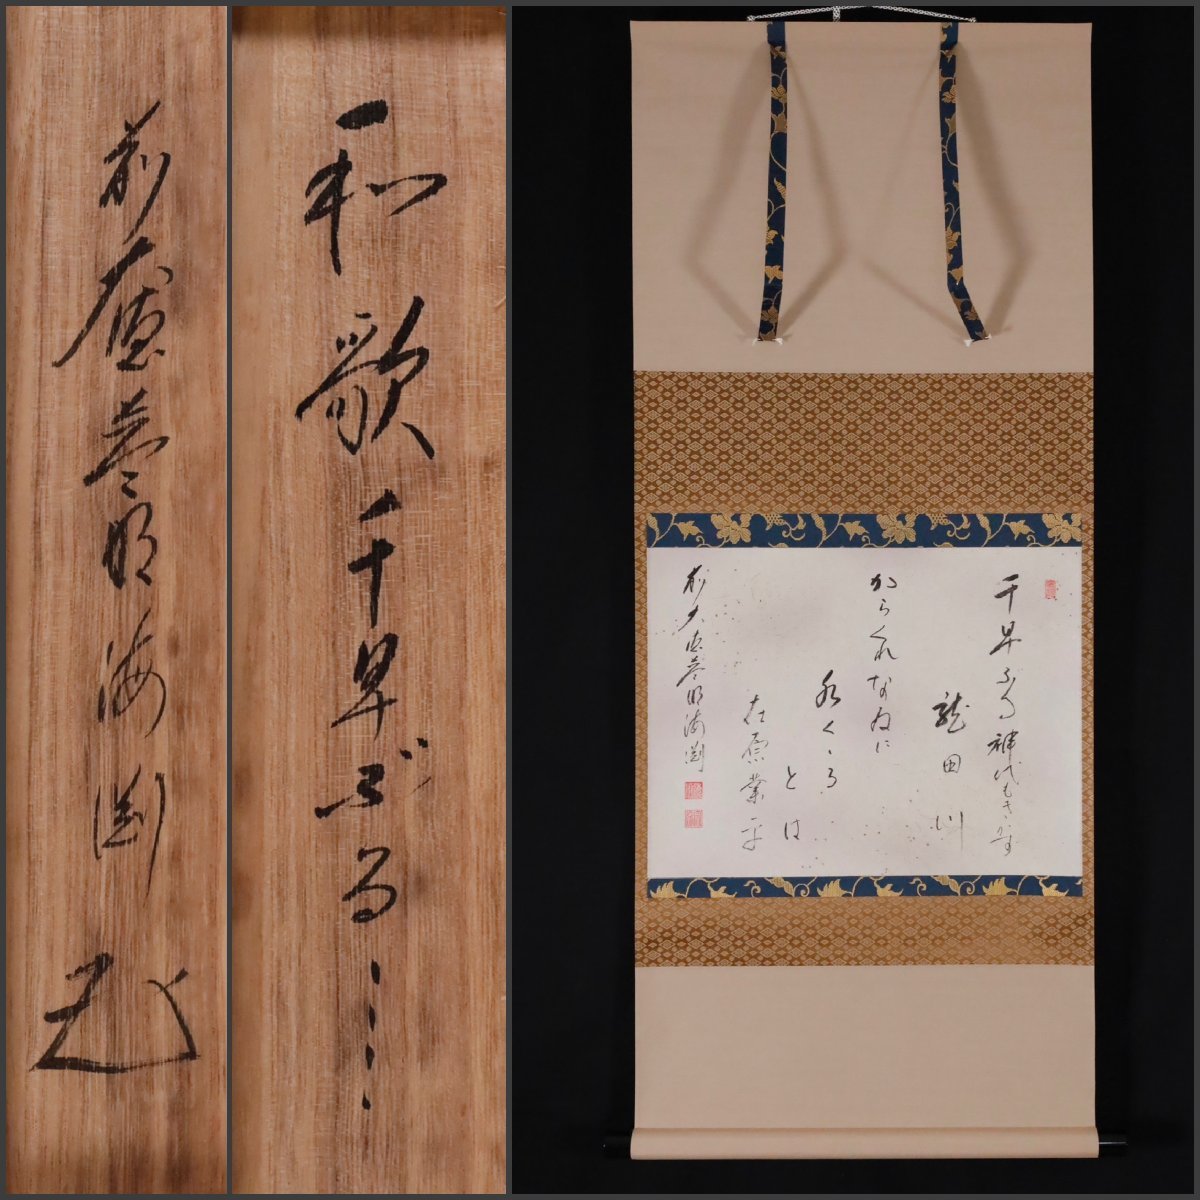 千早ふる神代もきかす
龍田川
からくれなゐに
水くゝる
とは
在原業平
前大徳 明海渕
和歌 千早ぶる……
前大徳 明海渕